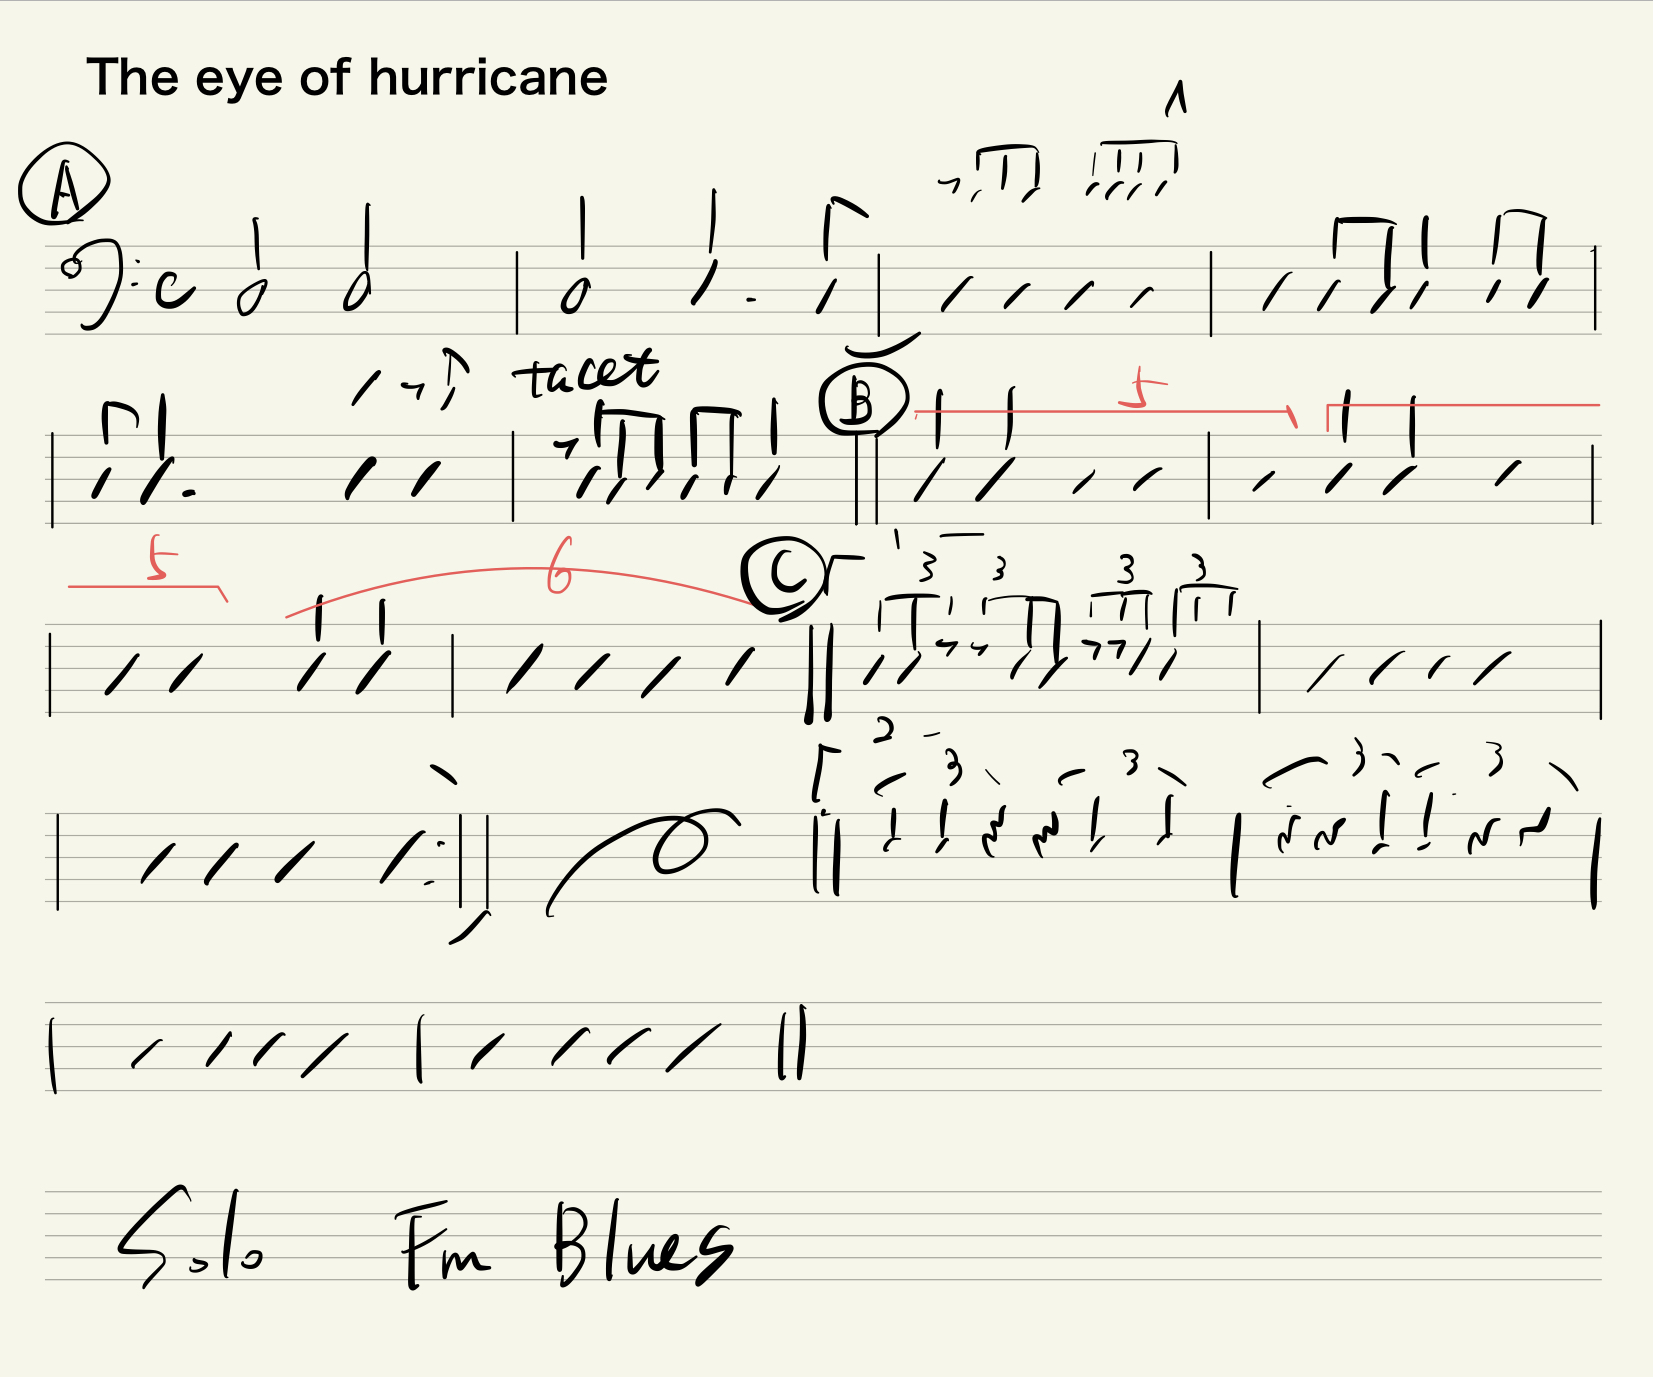 The eye of hurricane
A
C
tacet
B
5
5
6
C
1
3 3 3 3
2
3 3 3 3
Solo Fm Blues